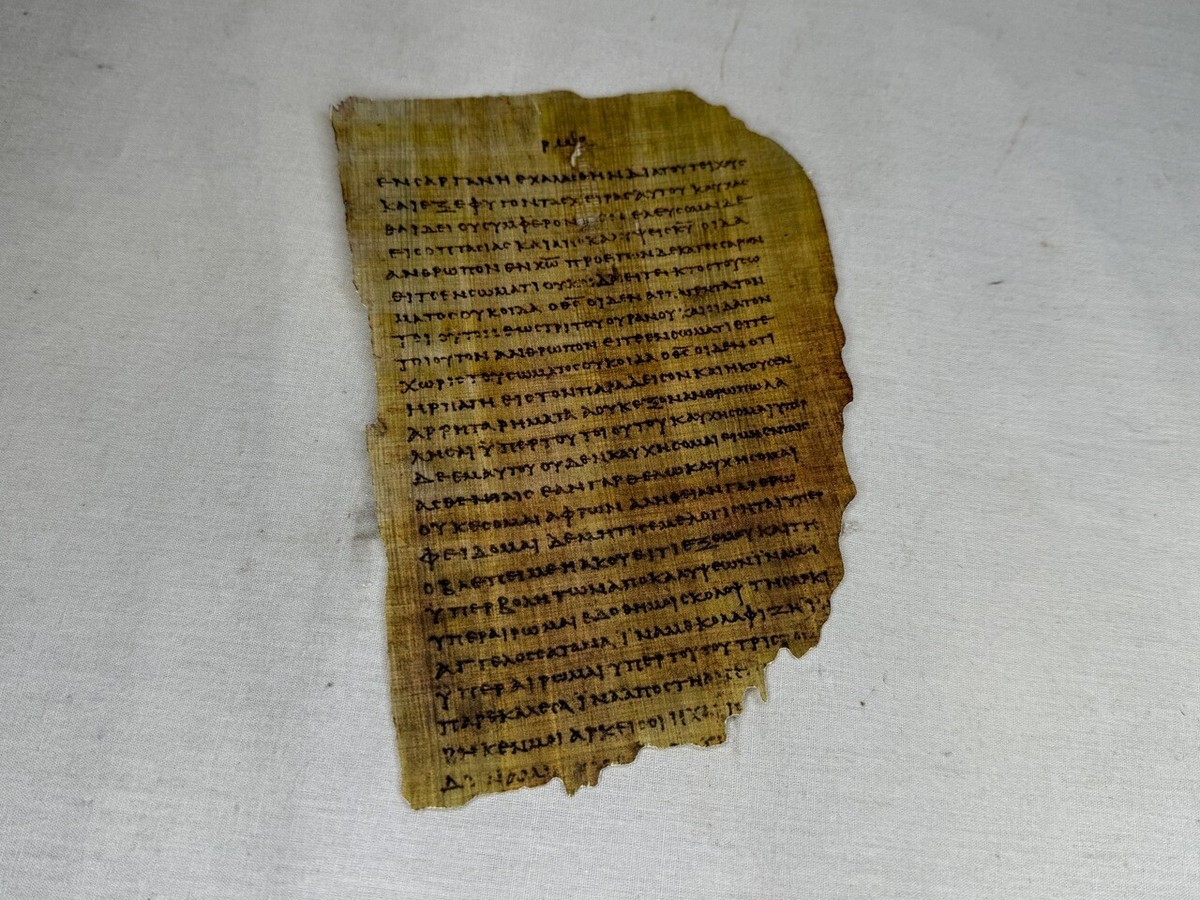 ΕΝϹΑΡΓΑΝΗΕΧΑΛΑϹΘΗΝΔΙΑΤΟΥΤΕΙΧΟΥϹ
ΚΑΙΕΞΕΦΥΓΟΝΤΑϹΧΕΙΡΑϹΑΥΤΟΥ ΚΑΥΧΑϹ
ΘΑΙΔΕΙΟΥϹΥΜΦΕΡΟΝ ΕΛΕΥϹΟΜΑΙΔΕ
ΕΙϹΟΠΤΑϹΙΑϹΚΑΙΑΠΟΚΑΛΥΨΕΙϹΚ̅Υ̅ ΟΙΔΑ
ΑΝΘΡΩΠΟΝΕΝΧ̅Ω̅ ΠΡΟΕΤΩΝΔΕΚΑΤΕϹϹΑΡΩΝ
ΕΙΤΕΕΝϹΩΜΑΤΙΟΥΚΟΙΔΑΕΙΤΕΕΚΤΟϹΤΟΥϹΩ
ΜΑΤΟϹΟΥΚΟΙΔΑ ΟΘ̅Ϲ̅ ΟΙΔΕΝΑΡΠΑΓΕΝΤΑΤΟΝ
ΤΟΙΟΥΤΟΝΕΩϹΤΡΙΤΟΥΟΥΡΑΝΟΥ ΚΑΙΟΙΔΑΤΟΝ
ΤΟΙΟΥΤΟΝΑΝΘΡΩΠΟΝΕΙΤΕΕΝϹΩΜΑΤΙΕΙΤΕ
ΧΩΡΙϹΤΟΥϹΩΜΑΤΟϹΟΥΚΟΙΔΑ ΟΘ̅Ϲ̅ ΟΙΔΕΝΟΤΙ
ΗΡΠΑΓΗΕΙϹΤΟΝΠΑΡΑΔΕΙϹΟΝΚΑΙΗΚΟΥϹΕΝ
ΑΡΡΗΤΑΡΗΜΑΤΑ ΑΟΥΚΕΞΟΝΑΝΘΡΩΠΩΛΑ
ΛΗϹΑΙΫΠΕΡΤΟΥΤΟΙΟΥΤΟΥΚΑΥΧΗϹΟΜΑΙΥΠΕΡ
ΔΕΕΜΑΥΤΟΥΟΥΔΕΝΚΑΥΧΗϹΟΜΑΙΕΙΜΗΕΝΤΑΙϹ
ΑϹΘΕΝΕΙΑΙϹ ΕΑΝΓΑΡΘΕΛΩΚΑΥΧΗϹΟΜΑΙ
ΟΥΚΕϹΟΜΑΙΑΦΡΩΝ ΑΛΗΘΕΙΑΝΓΑΡΕΡΩ
ΦΕΙΔΟΜΑΙ ΔΕΜΗΤΙϹΕΜΕΛΟΓΙϹΗΤΑΙΥΠΕΡ
ΟΒΛΕΠΕΙΜΕΗΑΚΟΥΕΙΤΙΕΞΕΜΟΥΚΑΙΤΗ
ΥΠΕΡΒΟΛΗΤΩΝΑΠΟΚΑΛΥΨΕΩΝΪΝΑΜΗ
ΥΠΕΡΑΙΡΩΜΑΙΕΔΟΘΗΜΟΙϹΚΟΛΟΨ ΤΗϹΑΡΚΙ
ΑΓΓΕΛΟϹϹΑΤΑΝΑ ΪΝΑΜΕΚΟΛΑΦΙΖΗΪ
ΥΠΕΡΑΙΡΩΜΑΙΥΠΕΡΤΟΥΤΟΥΤΡΙϹ
ΠΑΡΕΚΑΛΕϹΑΪΝΑΑΠΟϹΤΗ
ΡΗΚΕΝΜΟΙΑΡΚΕΙϹΟΙΗΧΑ